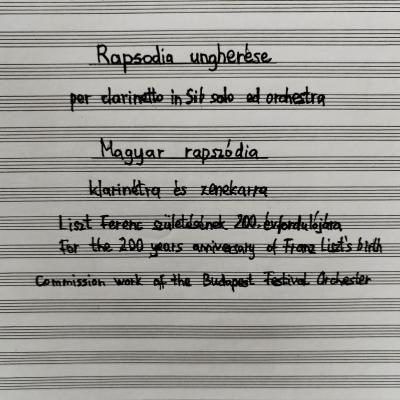 Rapsodia ungherese
per clarinetto in Sib solo ed orchestra
Magyar rapszódia
klarinétra és zenekarra
Liszt Ferenc születésének 200. évfordulójára
For the 200 years anniversary of Franz Liszt's birth
Commission work of the Budapest Festival Orchester